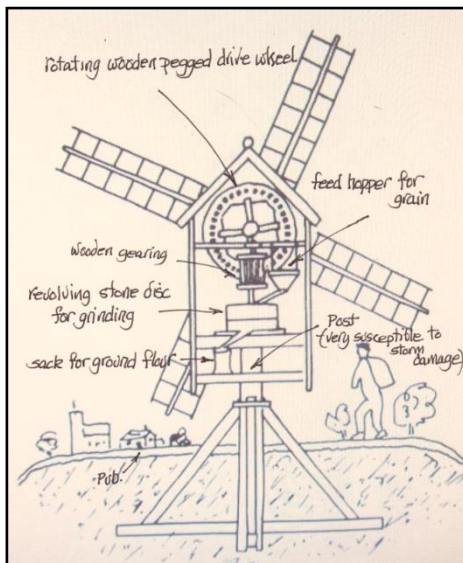 rotating wooden pegged drive wheel
feed hopper for
grain
wooden gearing
revolving stone disc
for grinding
Post
(very susceptible to
storm
damage)
sack for ground flour
Pub.